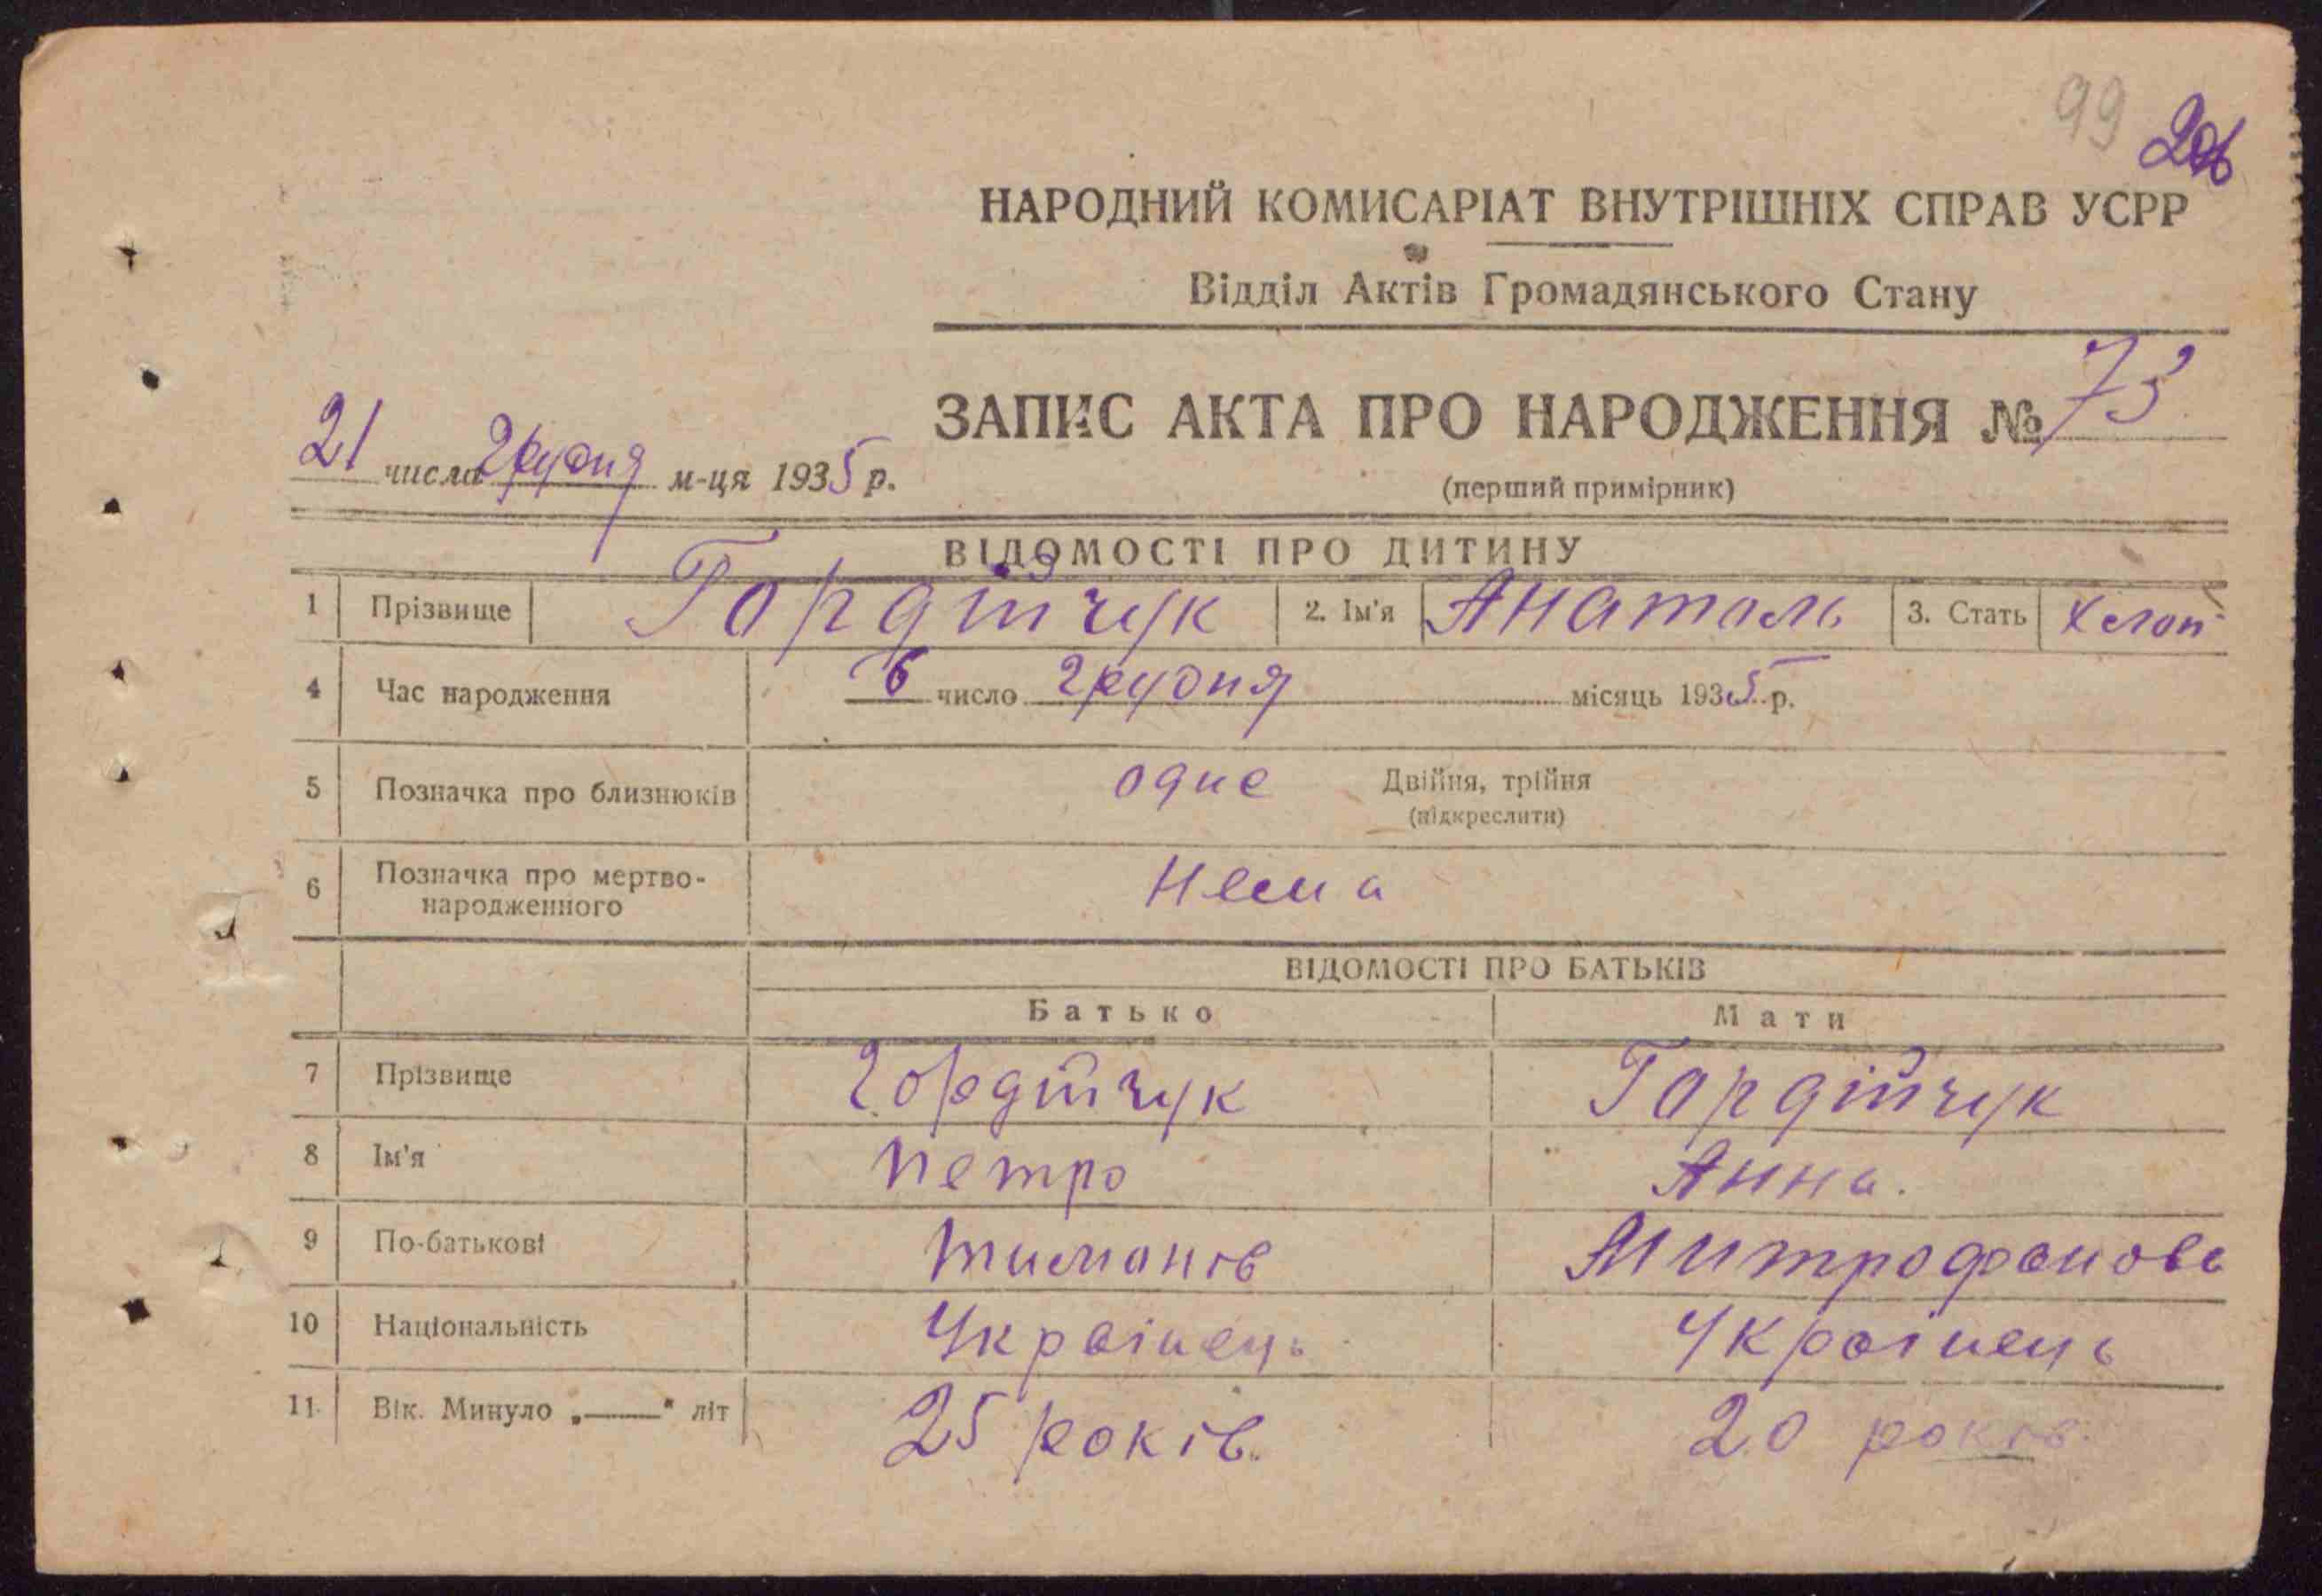 99
НАРОДНИЙ КОМИСАРІАТ ВНУТРІШНІХ СПРАВ УСРР
Відділ Актів Громадянського Стану
ЗАПИС АКТА ПРО НАРОДЖЕННЯ № 73
21 числа грудня м-ця 1935 р.
(перший примірник)
ВІДОМОСТІ ПРО ДИТИНУ
1 Прізвище Гордійчук 2. Ім'я Анатоль 3. Стать Хлоп
4 Час народження 6 число грудня місяць 1935 р.
5 Позначка про близнюків одне Двійня, трійня
(підкреслити)
6 Позначка про мертво-
народженного Нема
ВІДОМОСТІ ПРО БАТЬКІВ
Батько Мати
7 Прізвище Гордійчук Гордійчук
8 Ім'я Петро Анна.
9 По-батькові Тимонів Митрофанова
10 Національність Українець Українець
11 Вік. Минуло „——" літ 25 років. 20 років.